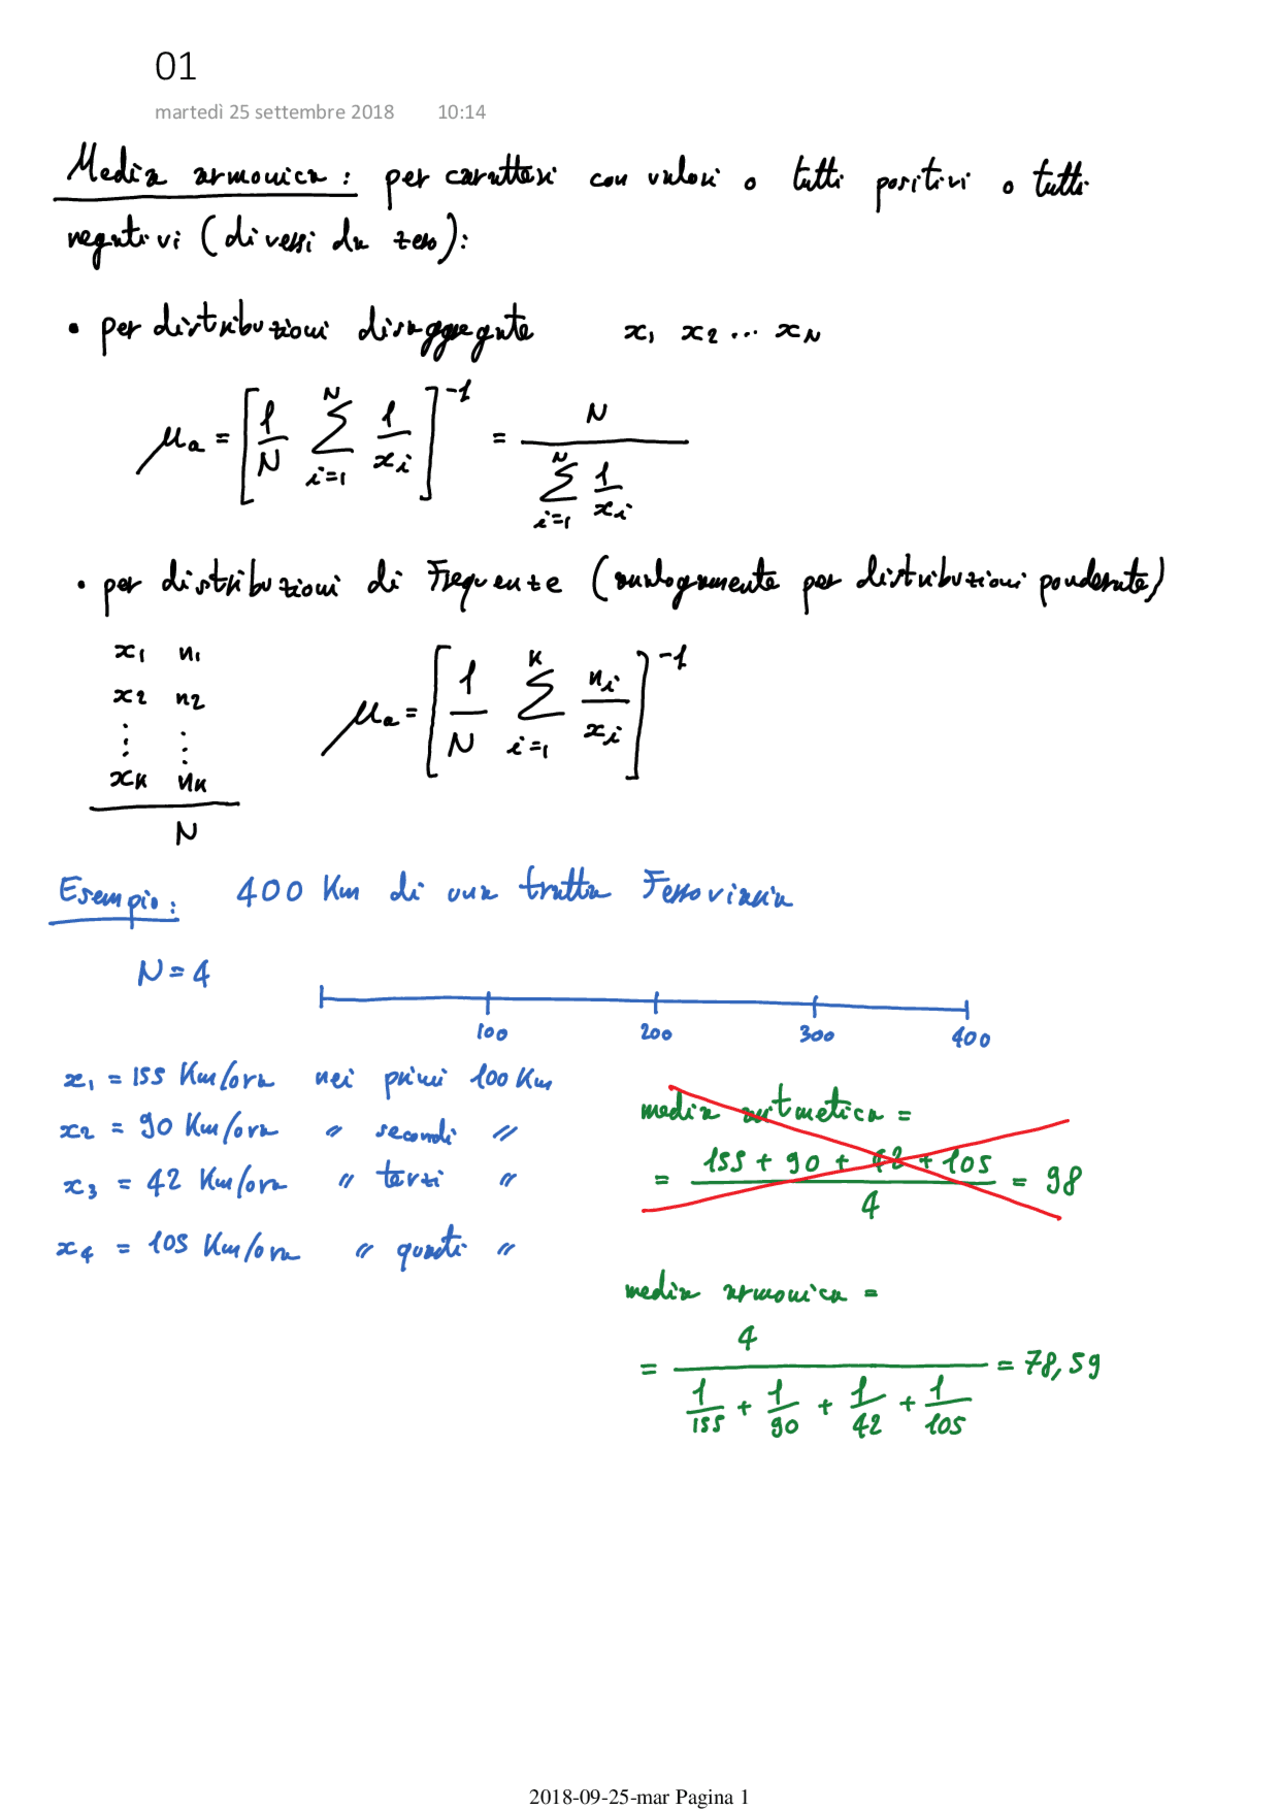 01
martedì 25 settembre 2018 10:14
Media armonica: per caratteri con valori o tutti positivi o tutti
negativi (diversi da zero):
• per distribuzioni disaggregate x₁ x₂ ... x_N
μₐ = [1/N ∑_{i=1}^{N} 1/xᵢ]⁻¹ = N / ∑_{i=1}^{N} 1/xᵢ
• per distribuzioni di Frequenze (analogamente per distribuzioni ponderate)
x₁ n₁
x₂ n₂
⋮ ⋮
x_K n_K
N
μₐ = [1/N ∑_{i=1}^{K} nᵢ/xᵢ]⁻¹
Esempio: 400 Km di una tratta Ferroviaria
N = 4
100 200 300 400
x₁ = 155 Km/ora nei primi 100 Km
x₂ = 90 Km/ora " secondi "
x₃ = 42 Km/ora " terzi "
x₄ = 105 Km/ora " quarti "
media aritmetica =
= (155 + 90 + 42 + 105) / 4 = 98
media armonica =
= 4 / (1/155 + 1/90 + 1/42 + 1/105) = 78,59
2018-09-25-mar Pagina 1